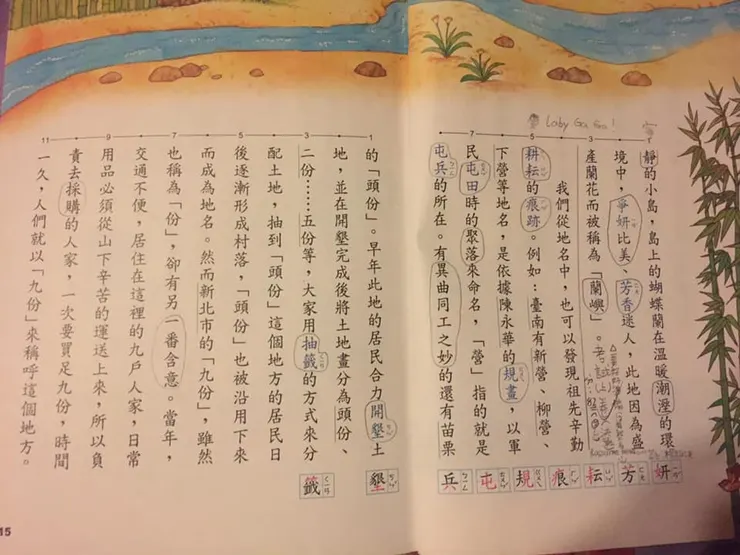 Lady Ga Ga!
靜的小島，島上的蝴蝶蘭在溫暖潮溼的環
境中，爭妍比美、芳香迷人，此地因為盛
產蘭花而被稱為「蘭嶼」。
我們從地名中，也可以發現祖先辛勤
耕耘的痕跡。例如：臺南有新營、柳營、
下營等地名，是依據陳永華的規畫，以軍
民屯田時的聚落來命名，「營」指的就是
屯兵的所在。有異曲同工之妙的還有苗栗
妍
芳
耘
痕
規
屯
兵
的「頭份」。早年此地的居民合力開墾土
地，並在開墾完成後將土地畫分為頭份、
二份……五份等，大家用抽籤的方式來分
配土地，抽到「頭份」這個地方的居民日
後逐漸形成村落，「頭份」也被沿用下來
而成為地名。然而新北市的「九份」，雖然
也稱為「份」，卻有另一番含意。當年，
交通不便，居住在這裡的九戶人家，日常
用品必須從山下辛苦的運送上來，所以負
責去採購的人家，一次要買足九份，時間
一久，人們就以「九份」來稱呼這個地方。
墾
籤
1
3
5
7
9
11
3
5
7
15